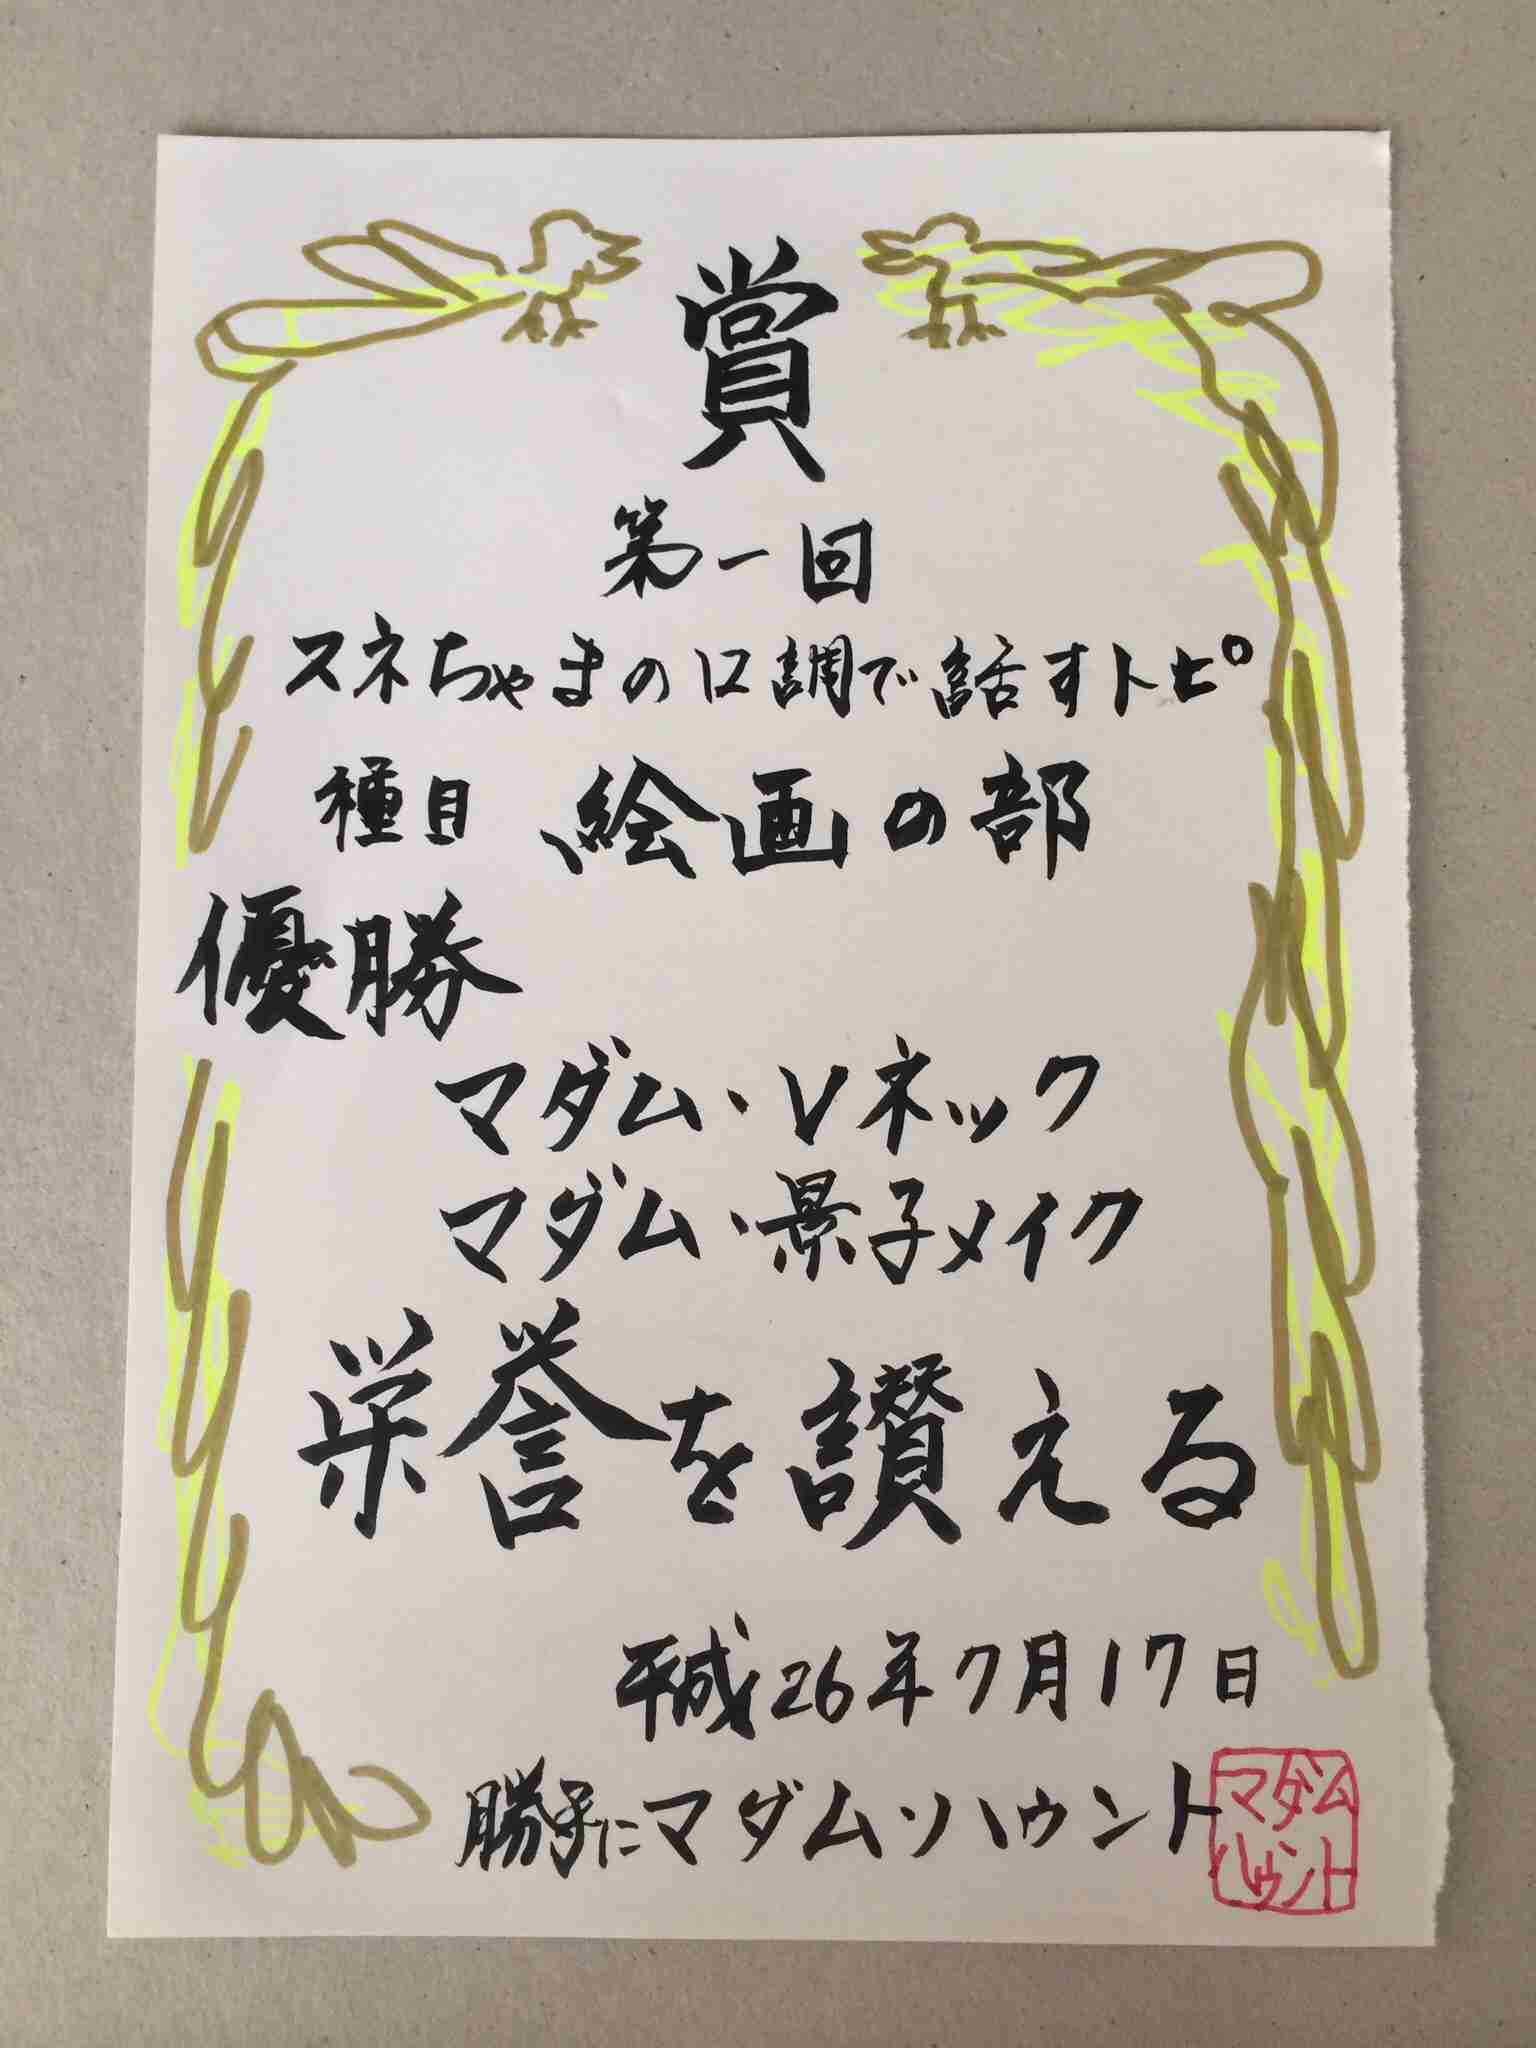 賞
第一回
スネちゃまの口調で話すトピ
種目 絵画の部
優勝
マダム・Vネック
マダム・景子メイク
栄誉を讃える
平成26年7月17日
勝手にマダム・ハウント
マダム
ハウント